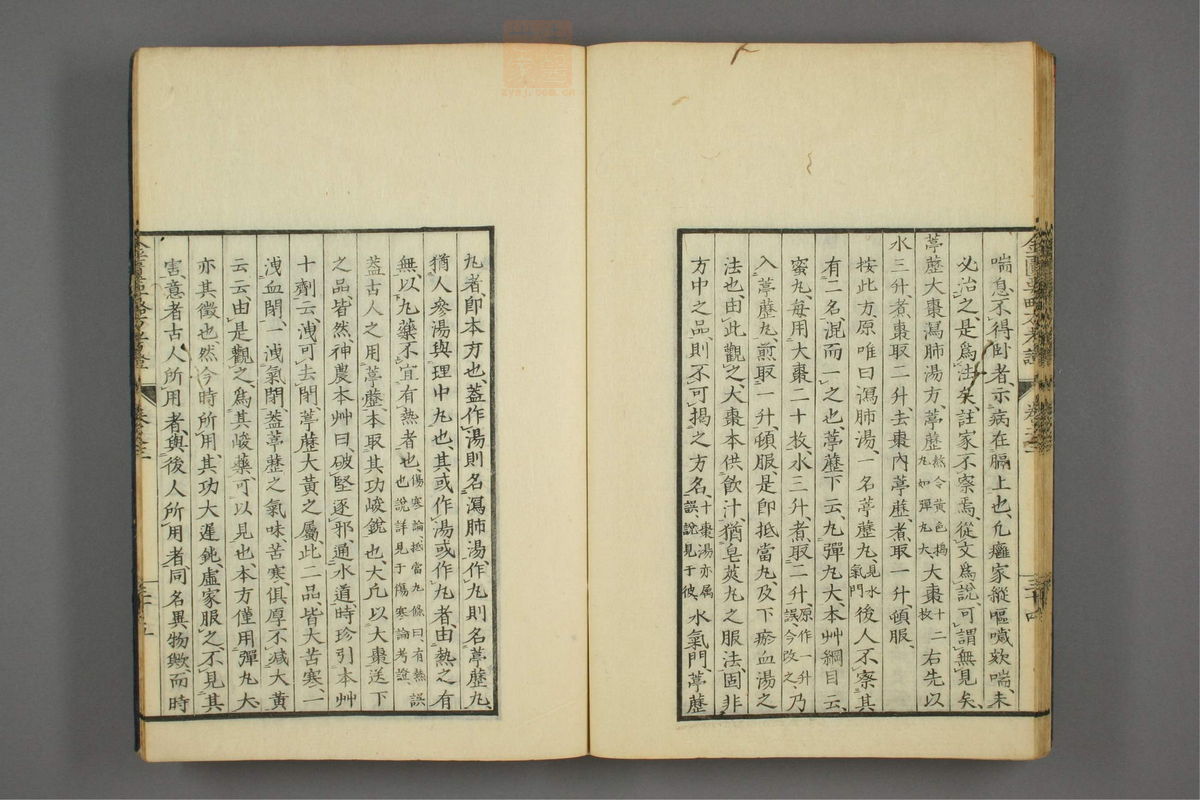 喘息、不得臥者、示病在膈上也、凡癰家縱嘔噦欬喘、未
必治之、是爲法矣、註家不察焉、從文爲說、可謂無見矣、
葶藶大棗瀉肺湯方、葶藶熬令黃色搗丸如彈丸大大棗十二枚右先以
水三升煮棗取二升、去棗內葶藶、煮取一升頓服、
按此方、原唯曰瀉肺湯、一名葶藶丸、見水氣門後人不察其
有二名、混而一之也、葶藶下云、丸彈丸大、本艸綱目云、
蜜丸、每用大棗二十枚、水三升煮取二升、原作一升誤今改之、乃
入葶藶丸、煎取一升、頓服、是卽抵當丸、及下瘀血湯之
法也、由此觀之、大棗本供飮汁、猶皂莢丸之服法、固非
方中之品、則不可揭之方名、十棗湯亦屬誤、說見于彼、水氣門、葶藶
丸者卽本方也、蓋作湯則名瀉肺湯、作丸則名葶藶丸、
猶人參湯與理中丸也、其或作湯或作丸者、由熱之有
無、以丸藥不宜有熱者也、傷寒論、抵當丸條曰、有熱誤也、說詳見于傷寒論考證、
蓋古人之用葶藶、本取其功峻銳也、大凡以大棗送下
之品、皆然、神農本艸曰、破堅逐邪、通水道、時珍引本艸
十劑云、洩可去閉、葶藶大黃之屬、此二品皆大苦寒、一
洩血閉、一洩氣閉、蓋葶藶之氣味、苦寒俱厚、不減大黃
云云、由是觀之、爲其峻藥、可以見也、本方僅用彈丸大、
亦其徵也、然今時所用、其功大遲鈍、虛家服之、不見其
害、意者古人所用者、與後人所用者、同名異物歟、而時
金匱要略方考證
卷之三
三十四
金匱要略方考證
卷之三
三十五